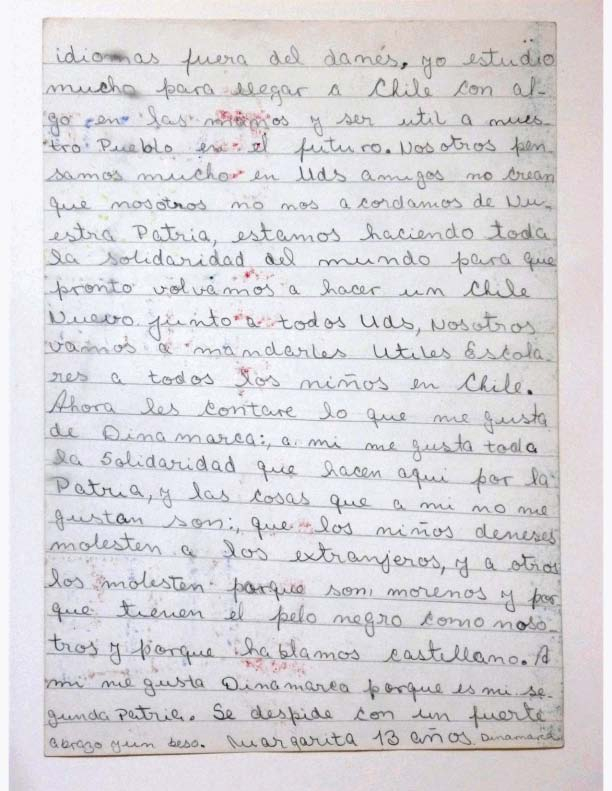 idiomas fuera del danés, yo estudio
mucho para llegar a Chile con al-
go en las manos y ser util a nues-
tro Pueblo en el futuro. Nosotros pen-
samos mucho en Uds amigos no crean
que nosotros no nos acordamos de Nu-
estra Patria, estamos haciendo toda
la solidaridad del mundo para que
pronto volvamos a hacer un Chile
Nuevo junto a todos Uds, Nosotros
vamos a mandarles Utiles Escola-
res a todos los niños en Chile.
Ahora les contare lo que me gusta
de Dinamarca:, a mi me gusta toda
la Solidaridad que hacen aqui por la
Patria, y las cosas que a mi no me
gustan son:, que los niños deneses
molesten a los extranjeros, y a otros
los molesten porque son morenos y por
que tienen el pelo negro como noso-
tros y porque hablamos castillano. A
mi me gusta Dinamarca porque es mi se-
gunda Patria. Se despide con un fuerte
abrazo y un beso. Margarita 13 años Dinamarca